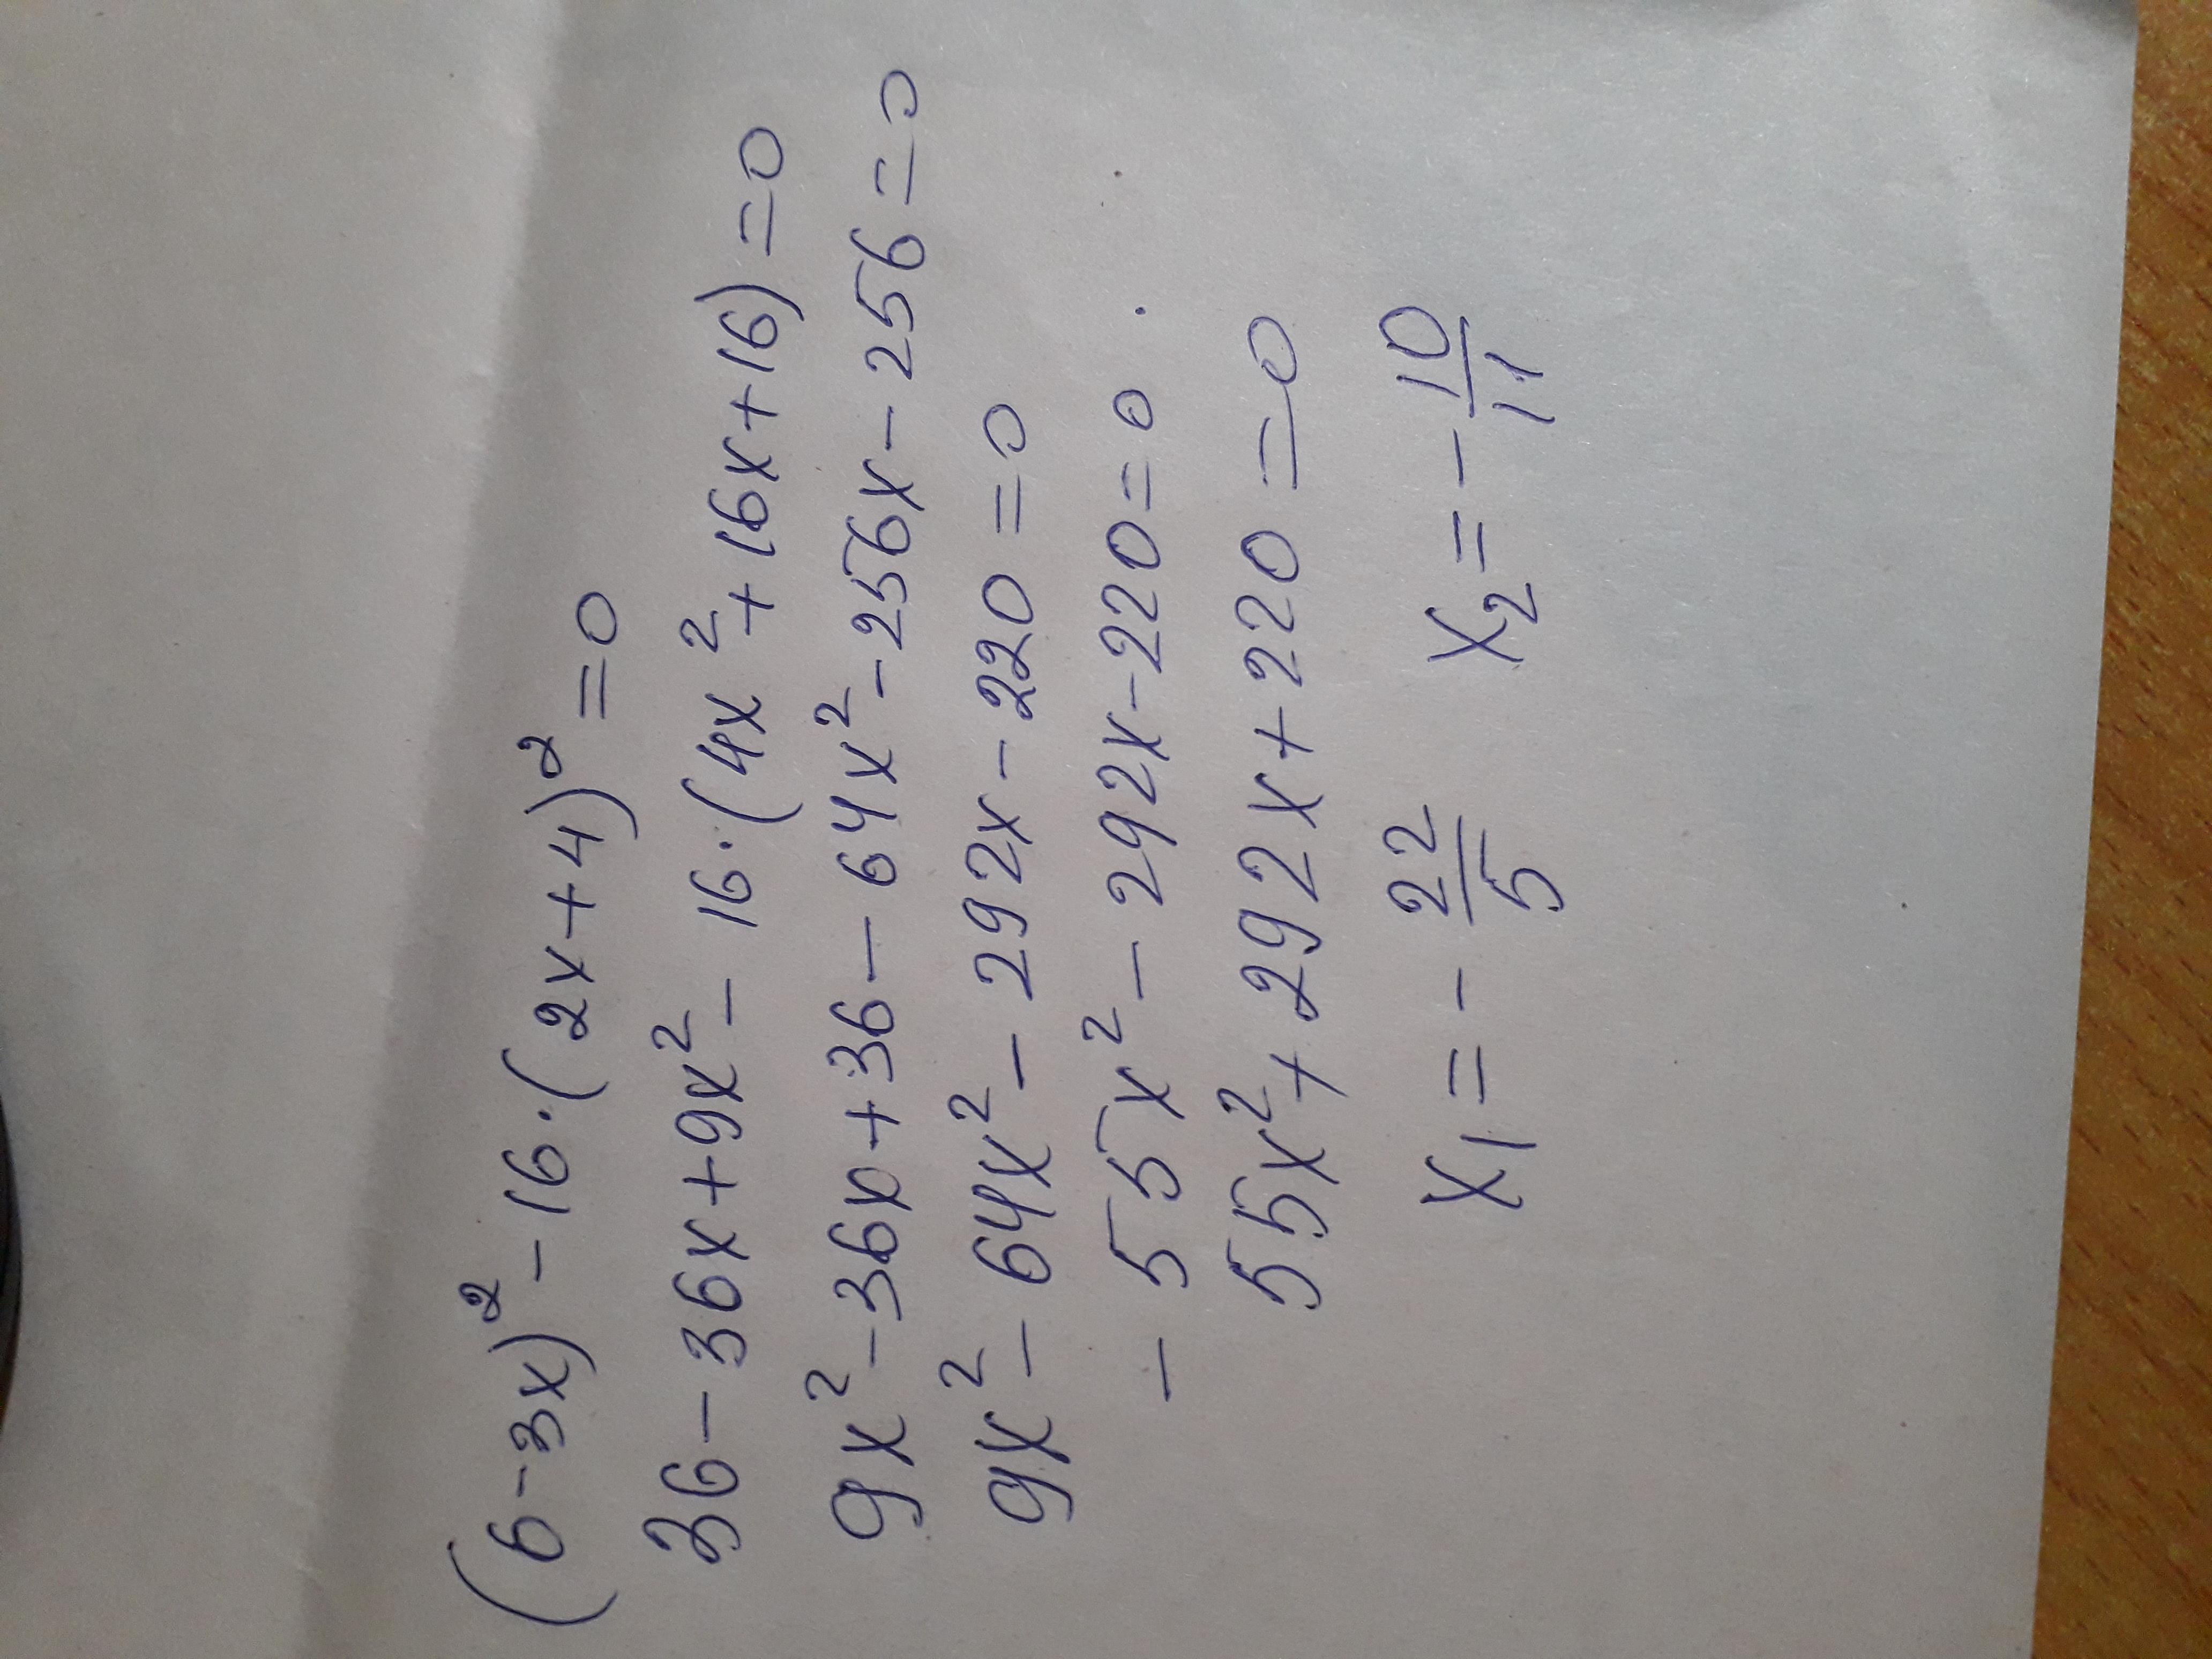 (6-3x)²-16·(2x+4)²=0
36-36x+9x²-16·(4x²+16x+16)=0
9x²-36x+36-64x²-256x-256=0
9x²-64x²-292x-220=0
-55x²-292x-220=0
55x²+292x+220=0
x₁=-22/5 x₂=-10/11